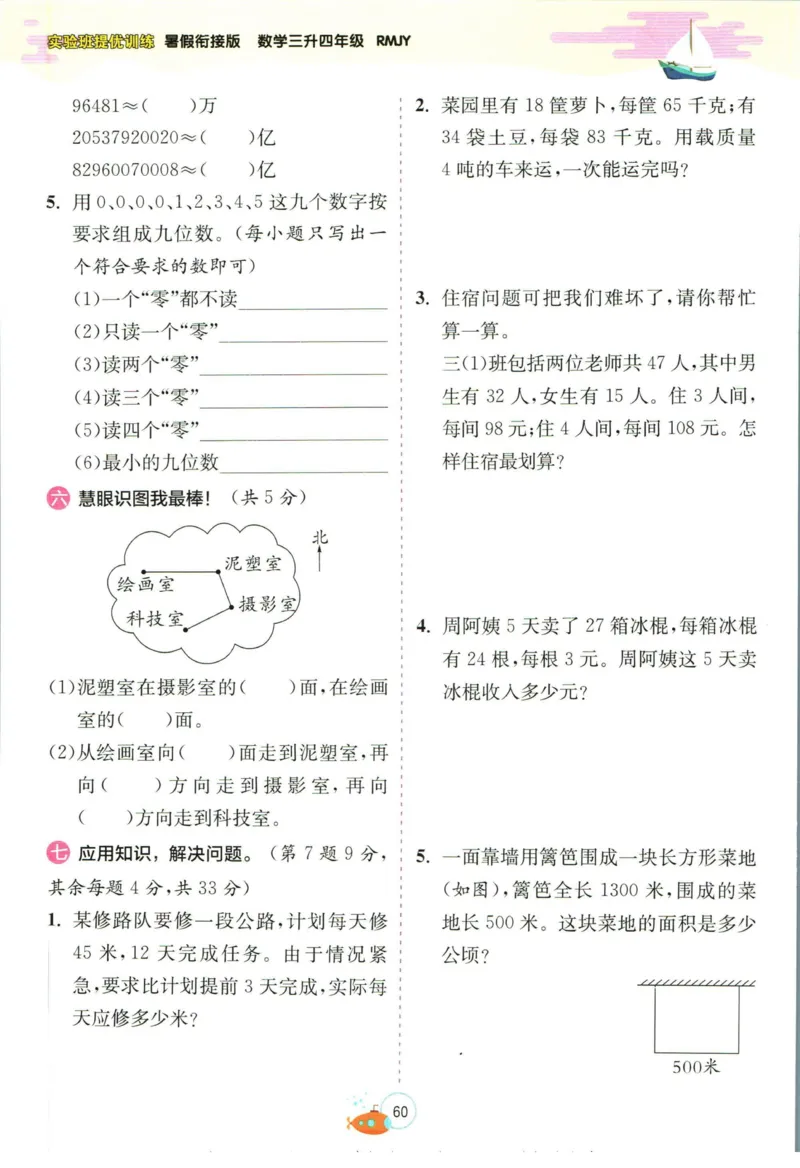 实验班提优训练 暑假衔接版 数学三升四年级 RMJY
96481≈(  )万
20537920020≈(  )亿
82960070008≈(  )亿
5. 用0、0、0、0、1、2、3、4、5这九个数字按
要求组成九位数。(每小题只写出一
个符合要求的数即可)
(1)一个“零”都不读
(2)只读一个“零”
(3)读两个“零”
(4)读三个“零”
(5)读四个“零”
(6)最小的九位数
六 慧眼识图我最棒! (共5分)
北
泥塑室
绘画室
摄影室
科技室
(1)泥塑室在摄影室的(  )面,在绘画
室的(  )面。
(2)从绘画室向(  )面走到泥塑室,再
向(  )方向走到摄影室,再向
(  )方向走到科技室。
七 应用知识,解决问题。(第7题9分,
其余每题4分,共33分)
1. 某修路队要修一段公路,计划每天修
45米,12天完成任务。由于情况紧
急,要求比计划提前3天完成,实际每
天应修多少米?
2. 菜园里有18筐萝卜,每筐65千克;有
34袋土豆,每袋83千克。用载质量
4吨的车来运,一次能运完吗?
3. 住宿问题可把我们难坏了,请你帮忙
算一算。
三(1)班包括两位老师共47人,其中男
生有32人,女生有15人。住3人间,
每间98元;住4人间,每间108元。怎
样住宿最划算?
4. 周阿姨5天卖了27箱冰棍,每箱冰棍
有24根,每根3元。周阿姨这5天卖
冰棍收入多少元?
5. 一面靠墙用篱笆围成一块长方形菜地
(如图),篱笆全长1300米,围成的菜
地长500米。这块菜地的面积是多少
公顷?
500米
60